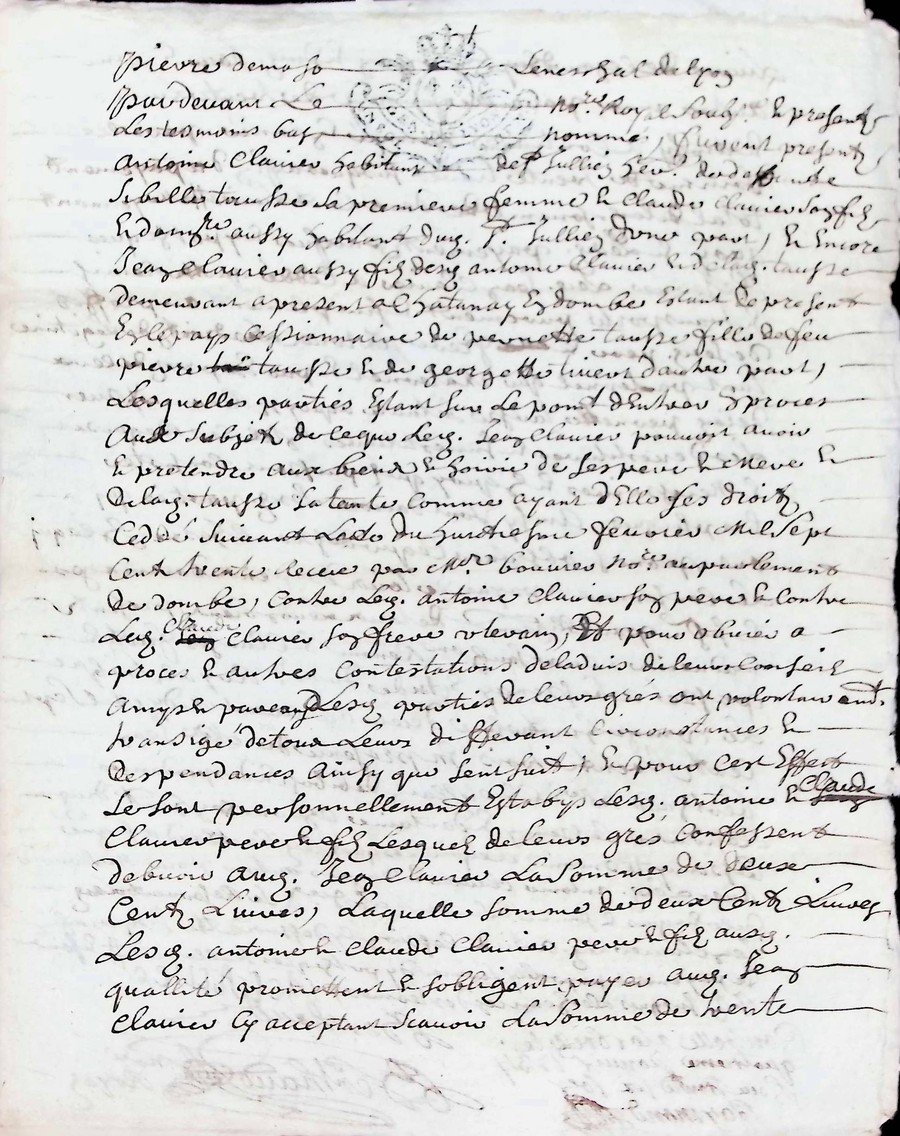 pierre demaso Seneschal de lyon
Pardevant Le no.re Royal soub.e & presentz
Les tesmoins bas nommé, furent presentz
antoine Clavier habitant de S.t Jullien
Sibille tousse sa premiere femme & Claude Clavier son filz
aussy habitant dud. S.t Jullien d'une part, & Encore
Jean Clavier aussy filz desd. antoine Clavier & delad. tousse
demeurant a present a Chatanay En dombe Estant de present
En le pays Cessionnaire de pernette tousse fille de feu
pierre tousse & de georgette livent d'autre part,
Lesquelles parties Estant sur Le point d'Entrer En proces
Aux Subjetz de ce que Led. Jean Clavier pouvoit avoir
& pretendre aux biens & hoirie de ses pere & Mere &
Delad. tousse sa tante Comme ayant d'Elle ses droitz
Ceddé Suivant Lacte du huictiesme feuvrier Mil Sept
Cent trente Receu par M.re bouvier no.re au parlement
De dombe, Contre Led. antoine Clavier son pere & Contre
Led. Claude Clavier son frere uterain, Et pour obvier a
proces & autres Contestations de ladvis de leurs Conseilz
Amys & parens Lesd. parties de leurs grés ont volontairement
transigé de tous Leurs differant Circonstances &
Despendances Ainsy que sensuit, & pour Cest Effect
Se sont personnellement Establys Lesd. antoine & Claude
Clavier pere & filz Lesquelz de leurs grés Confessent
Debvoir aud. Jean Clavier La Somme de deux
Centz Livres, Laquelle somme de deux Centz Livres
Lesd. antoine & Claude Clavier pere & filz ausd.
quallité promettent & sobligent payer aud. Jean
Clavier Cy acceptant Scavoir La Somme de trente